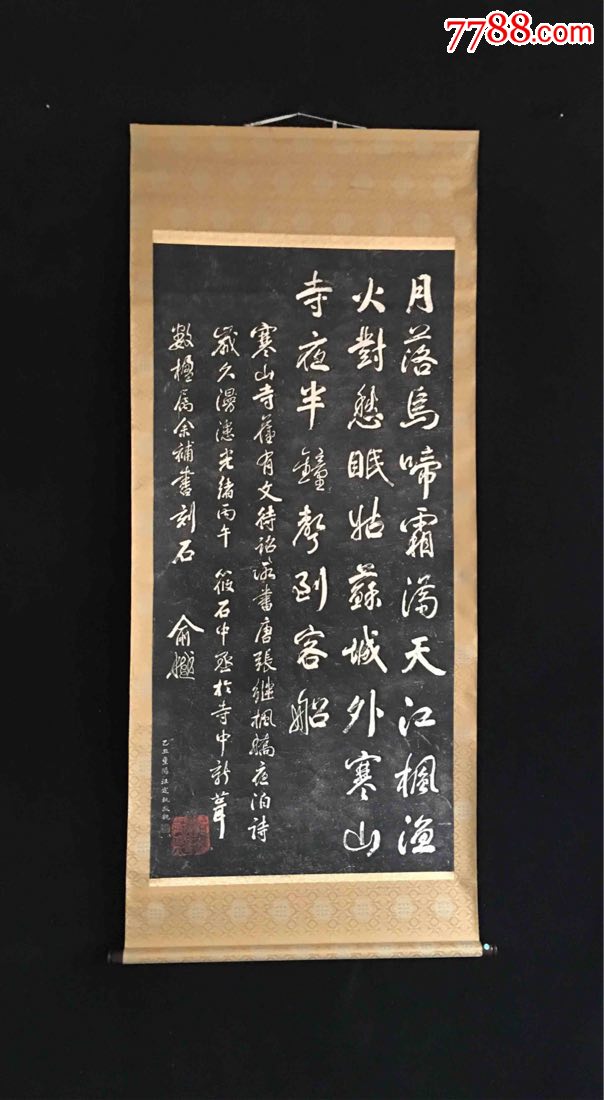 7788.com
月落烏啼霜满天江楓漁
火對愁眠姑蘇城外寒山
寺夜半鐘聲到客船
寒山寺舊有文待詔所書唐張继楓橋夜泊詩
歲久漫漶光緒丙午 筱石中丞於寺中新葺
數楹属余補書刻石
俞樾